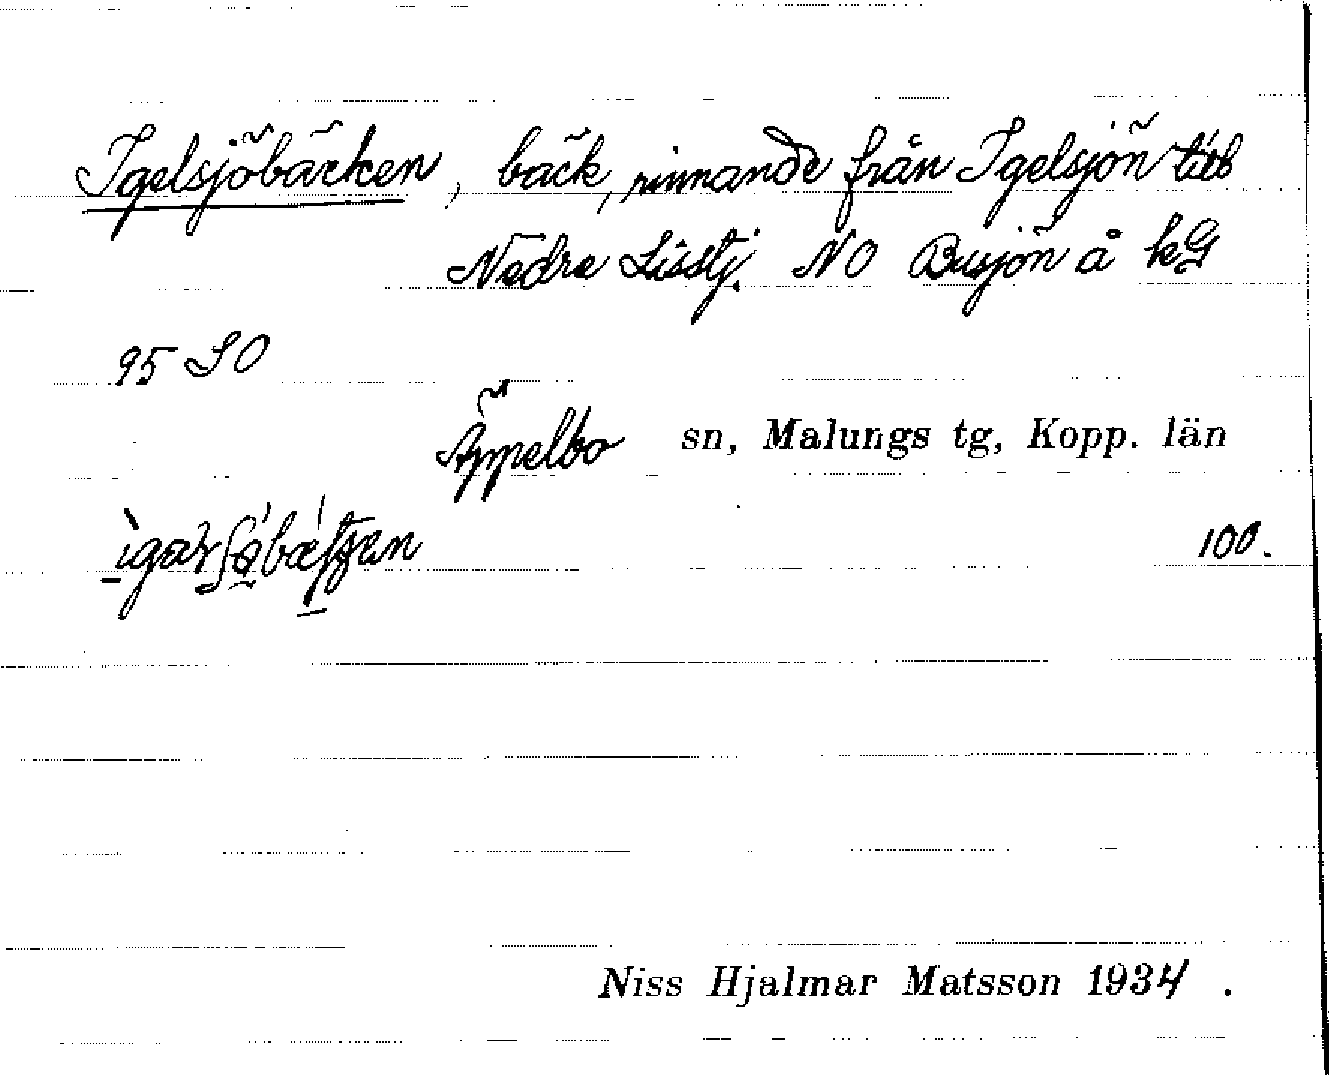 Igelsjöbäcken, bäck, rinnande från Igelsjön till
Nedre Lisstj. NO Busjön å kG
95 SO
Äppelbo sn, Malungs tg, Kopp. län
100.
Niss Hjalmar Matsson 1934.